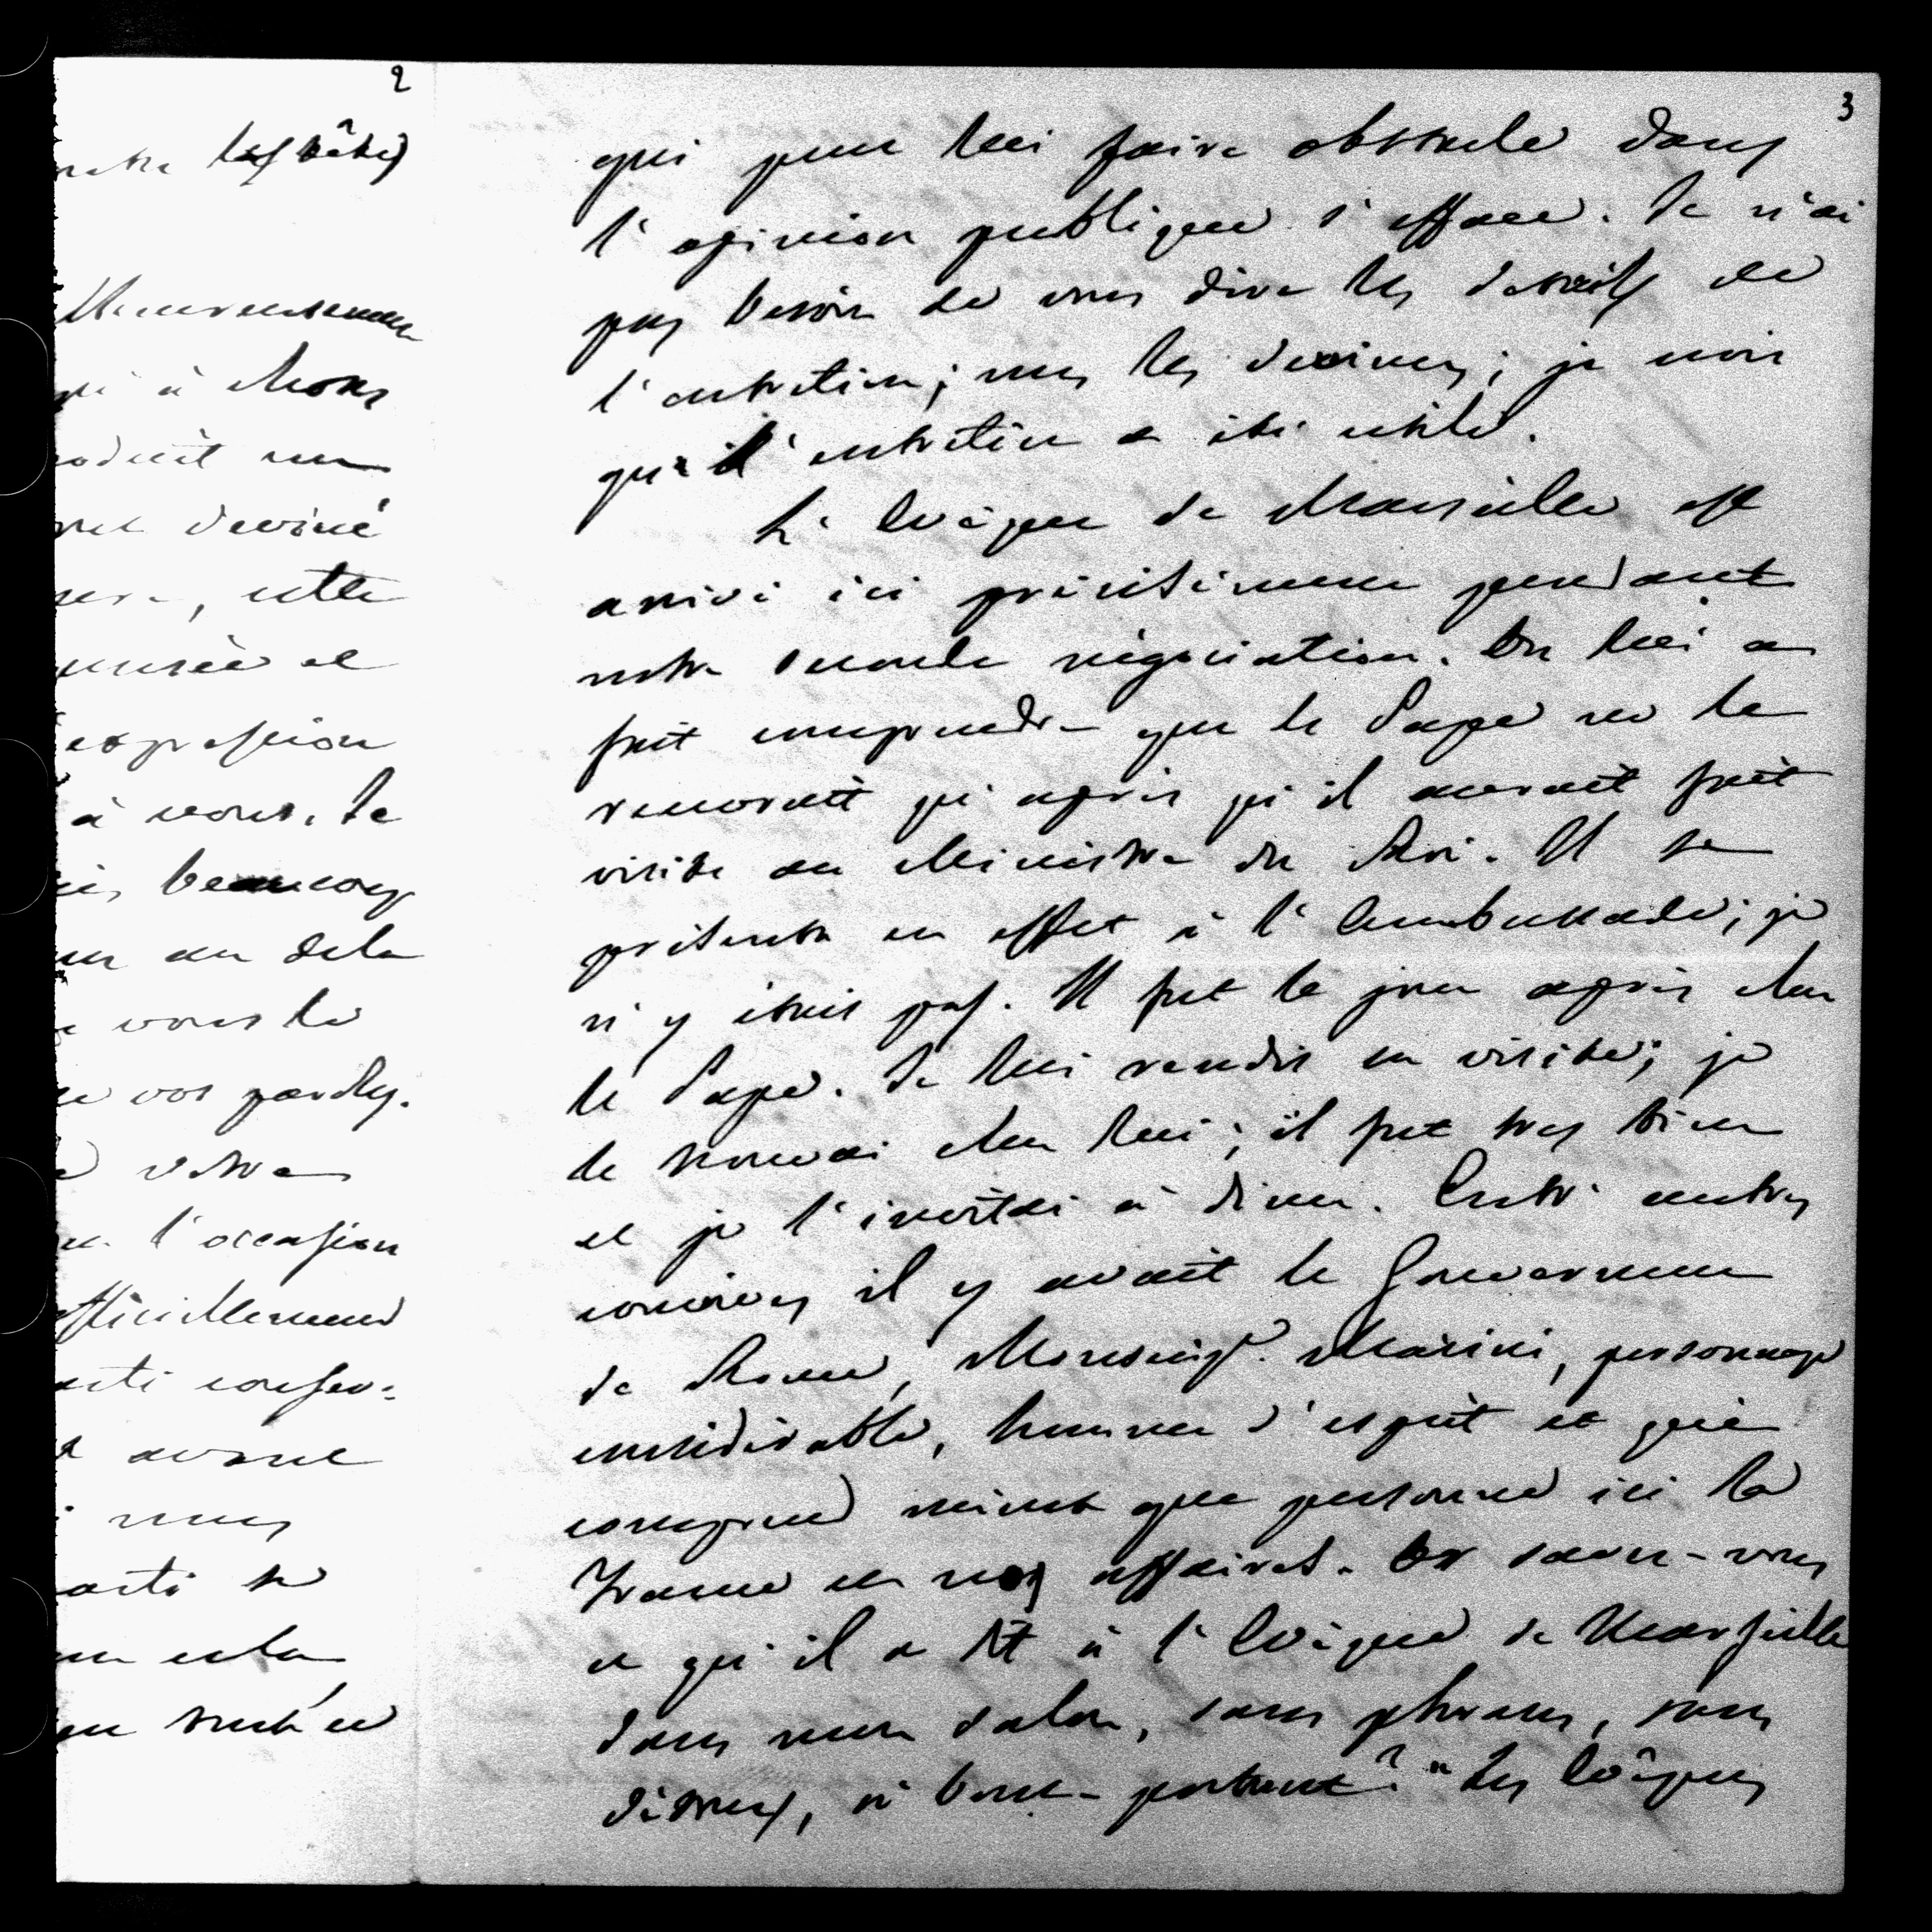 2
les bâtis
Heureusement
à Mons
oduit un
deviné
, cette
et
expression
à vous. Je
beaucoup
au delà
vous le
vos paroles.
votre
l'occasion
officiellement
conser=
avant
nous
se
cela
3
qui peut lui faire obstacle dans
l'opinion publique s'efface. Je n'ai
pas besoin de vous dire les détails de
l'entretien; vous les devinez; je crois
que l'entretien a été utile.
L'Evêque de Marseille est
arrivé ici précisément pendant
notre seconde négociation. On lui a
fait comprendre que le Pape ne le
recevrait qu'après qu'il aurait fait
visite au Ministre du Roi. Il se
présenta en effet à l'Ambassade; je
n'y étais pas. Il fut le jour après chez
le Pape. Je lui rendis sa visite; je
le trouvai chez lui; il fut très bien
et je l'invitai à diner. Entr'autres
convives il y avait le Gouverneur
de Rome, Monseigr. Marini, personnage
considérable, homme d'esprit et qui
comprend mieux que personne ici la
France et nos affaires. Or savez-vous
ce qu'il a dit à l'Evêque de Marseille
dans mon salon, sans phrases, sans
détours, à bout-portant? "Les Evêques